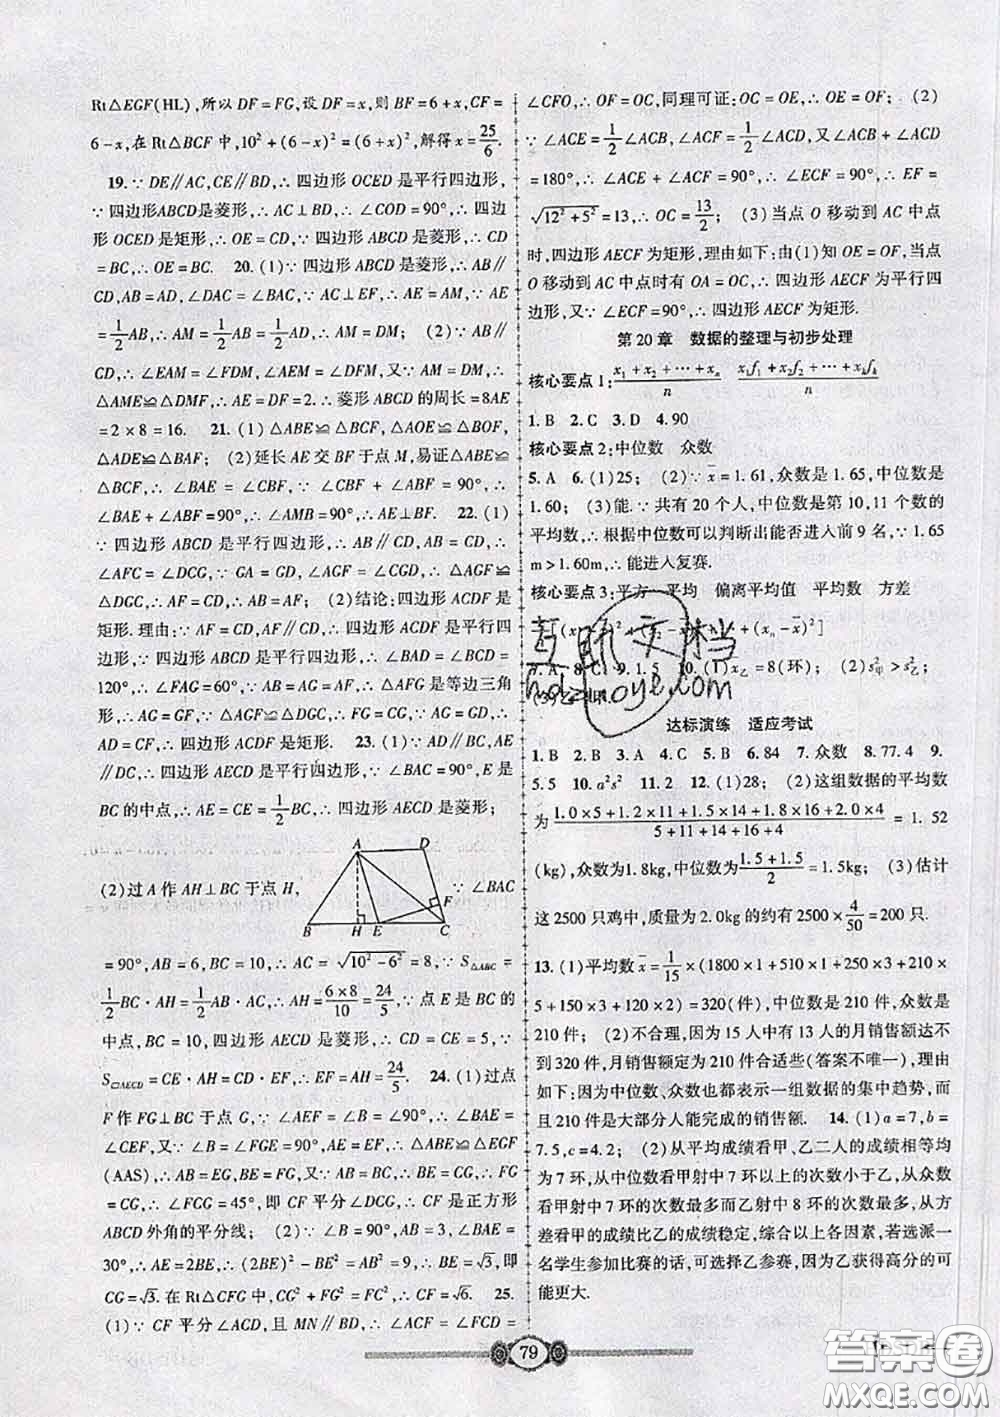 Rt△EGF(HL),所以 DF=FG,设 DF=x,则 BF=6+x,CF=
6-x,在 Rt△BCF 中,10²+(6-x)²=(6+x)²,解得 x=25/6.
19.∵DE∥AC,CE∥BD,∴四边形 OCED 是平行四边形,
∵四边形ABCD是菱形,∴AC⊥BD,∴∠COD=90°,∴四边
形 OCED 是矩形,∴OE=CD,∵四边形 ABCD 是菱形,∴CD
=BC,∴OE=BC. 20.(1)∵四边形 ABCD 是菱形,∴AB
=AD,∠DAC=∠BAC,∵AC⊥EF,∴AE=AM,∵AE=
1/2AB,∴AM=1/2AB=1/2AD,∴AM=DM; (2)∵AB∥
CD,∴∠EAM=∠FDM,∠AEM=∠DFM,又∵AM=DM,∴
△AME≌△DMF,∴AE=DF=2.∴菱形 ABCD 的周长=8AE
=2×8=16. 21.(1)△ABE≌△BCF,△AOE≌△BOF,
△ADE≌△BAF; (2)延长 AE 交 BF 于点 M,易证△ABE≌
△BCF,∴∠BAE=∠CBF,∵∠CBF+∠ABF=90°,∴
∠BAE+∠ABF=90°,∴∠AMB=90°,∴AE⊥BF. 22.(1)
∵四边形 ABCD 是平行四边形,∴AB∥CD,AB=CD,∴
∠AFC=∠DCG,∵GA=GD,∠AGF=∠CGD,∴△AGF≌
△DGC,∴AF=CD; (2)结论:四边形 ACDF 是
矩形.理由:∵AF=CD,AF∥CD,∴四边形 ACDF 是平行四
边形,∵四边形 ABCD 是平行四边形,∴∠BAD=∠BCD=
120°,∴∠FAG=60°,∵AB=AG=AF,∴△AFG 是等边三角
形,∴AG=GF,∵△AGF≌△DGC,∴FG=CG,∵AG=GD,∴
AD=CF,∴四边形 ACDF 是矩形. 23.(1)∵AD∥BC,AE
∥DC,∴四边形 AECD 是平行四边形,∵∠BAC=90°,E 是
BC 的中点,∴AE=CE=1/2BC,∴四边形 AECD 是菱形;
A
D
B
H
E
C
F
(2)过 A 作 AH⊥BC 于点 H, ∵∠BAC
=90°,AB=6,BC=10,∴AC=√(10²-6²)=8,∵S△ABC=
1/2BC·AH=1/2AB·AC,∴AH=(6×8)/10=24/5,∵点 E 是 BC 的
中点,BC=10,四边形 AECD 是菱形,∴CD=CE=5,∵
S▱AECD=CE·AH=CD·EF,∴EF=AH=24/5. 24.(1)过点
F 作 FG⊥BC 于点 G,∵∠AEF=∠B=∠90°,∴∠BAE=
∠CEF,又∵∠B=∠FGE=90°,AE=EF,∴△ABE≌△EGF
(AAS),∴AB=EG,BE=FG,又∵AB=BC,∴BE=CG,∴FG
=CG,∴∠FCG=45°,即 CF 平分∠DCG,∴CF 是正方形
ABCD 外角的平分线; (2)∵∠B=90°,AB=3,∠BAE=
30°,∴AE=2BE,∴(2BE)²-BE²=AB²=9,∴BE=√3,即
CG=√3.在 Rt△CFG 中,CG²+FG²=FC²,∴CF=√6. 25.
(1)∵CF 平分∠ACD,且 MN∥BD,∴∠ACF=∠FCD=
∠CFO,∴OF=OC,同理可证:OC=OE,∴OE=OF; (2)
∵∠ACE=1/2∠ACB,∠ACF=1/2∠ACD,又∠ACB+∠ACD
=180°,∴∠ACE+∠ACF=90°,∴∠ECF=90°,∴EF=
√(12²+5²)=13,∴OC=13/2; (3)当点 O 移动到 AC 中点
时,四边形 AECF 为矩形,理由如下:由(1)知 OE=OF,当点
O 移动到 AC 中点时有 OA=OC,∴四边形 AECF 为平行四
边形,又∵∠ECF=90°,∴四边形 AECF 为矩形.
第 20 章 数据的整理与初步处理
核心要点 1:(x₁+x₂+…+xₙ)/n (x₁f₁+x₂f₂+…+xₖfₖ)/n
1.B 2.C 3.D 4.90
核心要点 2:中位数 众数
5.A 6.(1)25; (2)∵x̄=1.61,众数是 1.65,中位数是
1.60; (3)能.∵共有 20 个人,中位数是第 10,11 个数的
平均数,∴根据中位数可以判断出能否进入前 9 名,∵1.65
m>1.60m,∴能进入复赛.
核心要点 3:平方 平均 偏离平均值 平均数 方差
+(xₙ-x̄)²]
7.A 8.C 9.1.5 10.(1)x̄乙=8(环); (2)s²甲>s²乙;
达标演练 适应考试
1.B 2.B 3.A 4.C 5.B 6.84 7.众数 8.77.4 9.
5.5 10.a²s² 11.2 12.(1)28; (2)这组数据的平均数
为(1.0×5+1.2×11+1.5×14+1.8×16+2.0×4)/(5+11+14+16+4)=1.52
(kg),众数为1.8kg,中位数为(1.5+1.5)/2=1.5kg; (3)估计
这 2500 只鸡中,质量为 2.0kg 的约有 2500×4/50=200 只.
13.(1)平均数 x̄=1/15×(1800×1+510×1+250×3+210×
5+150×3+120×2)=320(件),中位数是 210 件,众数是
210 件; (2)不合理,因为 15 人中有 13 人的月销售额达不
到 320 件,月销售额定为 210 件合适些(答案不唯一),理由
如下:因为中位数、众数也都表示一组数据的集中趋势,而
且 210 件是大部分人能完成的销售额. 14.(1)a=7,b=
7.5,c=4.2; (2)从平均成绩看甲、乙二人的成绩相等均
为 7 环,从中位数看甲射中 7 环以上的次数小于乙,从众数
看甲射中 7 环的次数最多而乙射中 8 环的次数最多,从方
差看甲的成绩比乙的成绩稳定,综合以上各因素,若选派一
名学生参加比赛的话,可选择乙参赛,因为乙获得高分的可
能更大.
79
答案圈
MXQE.COM